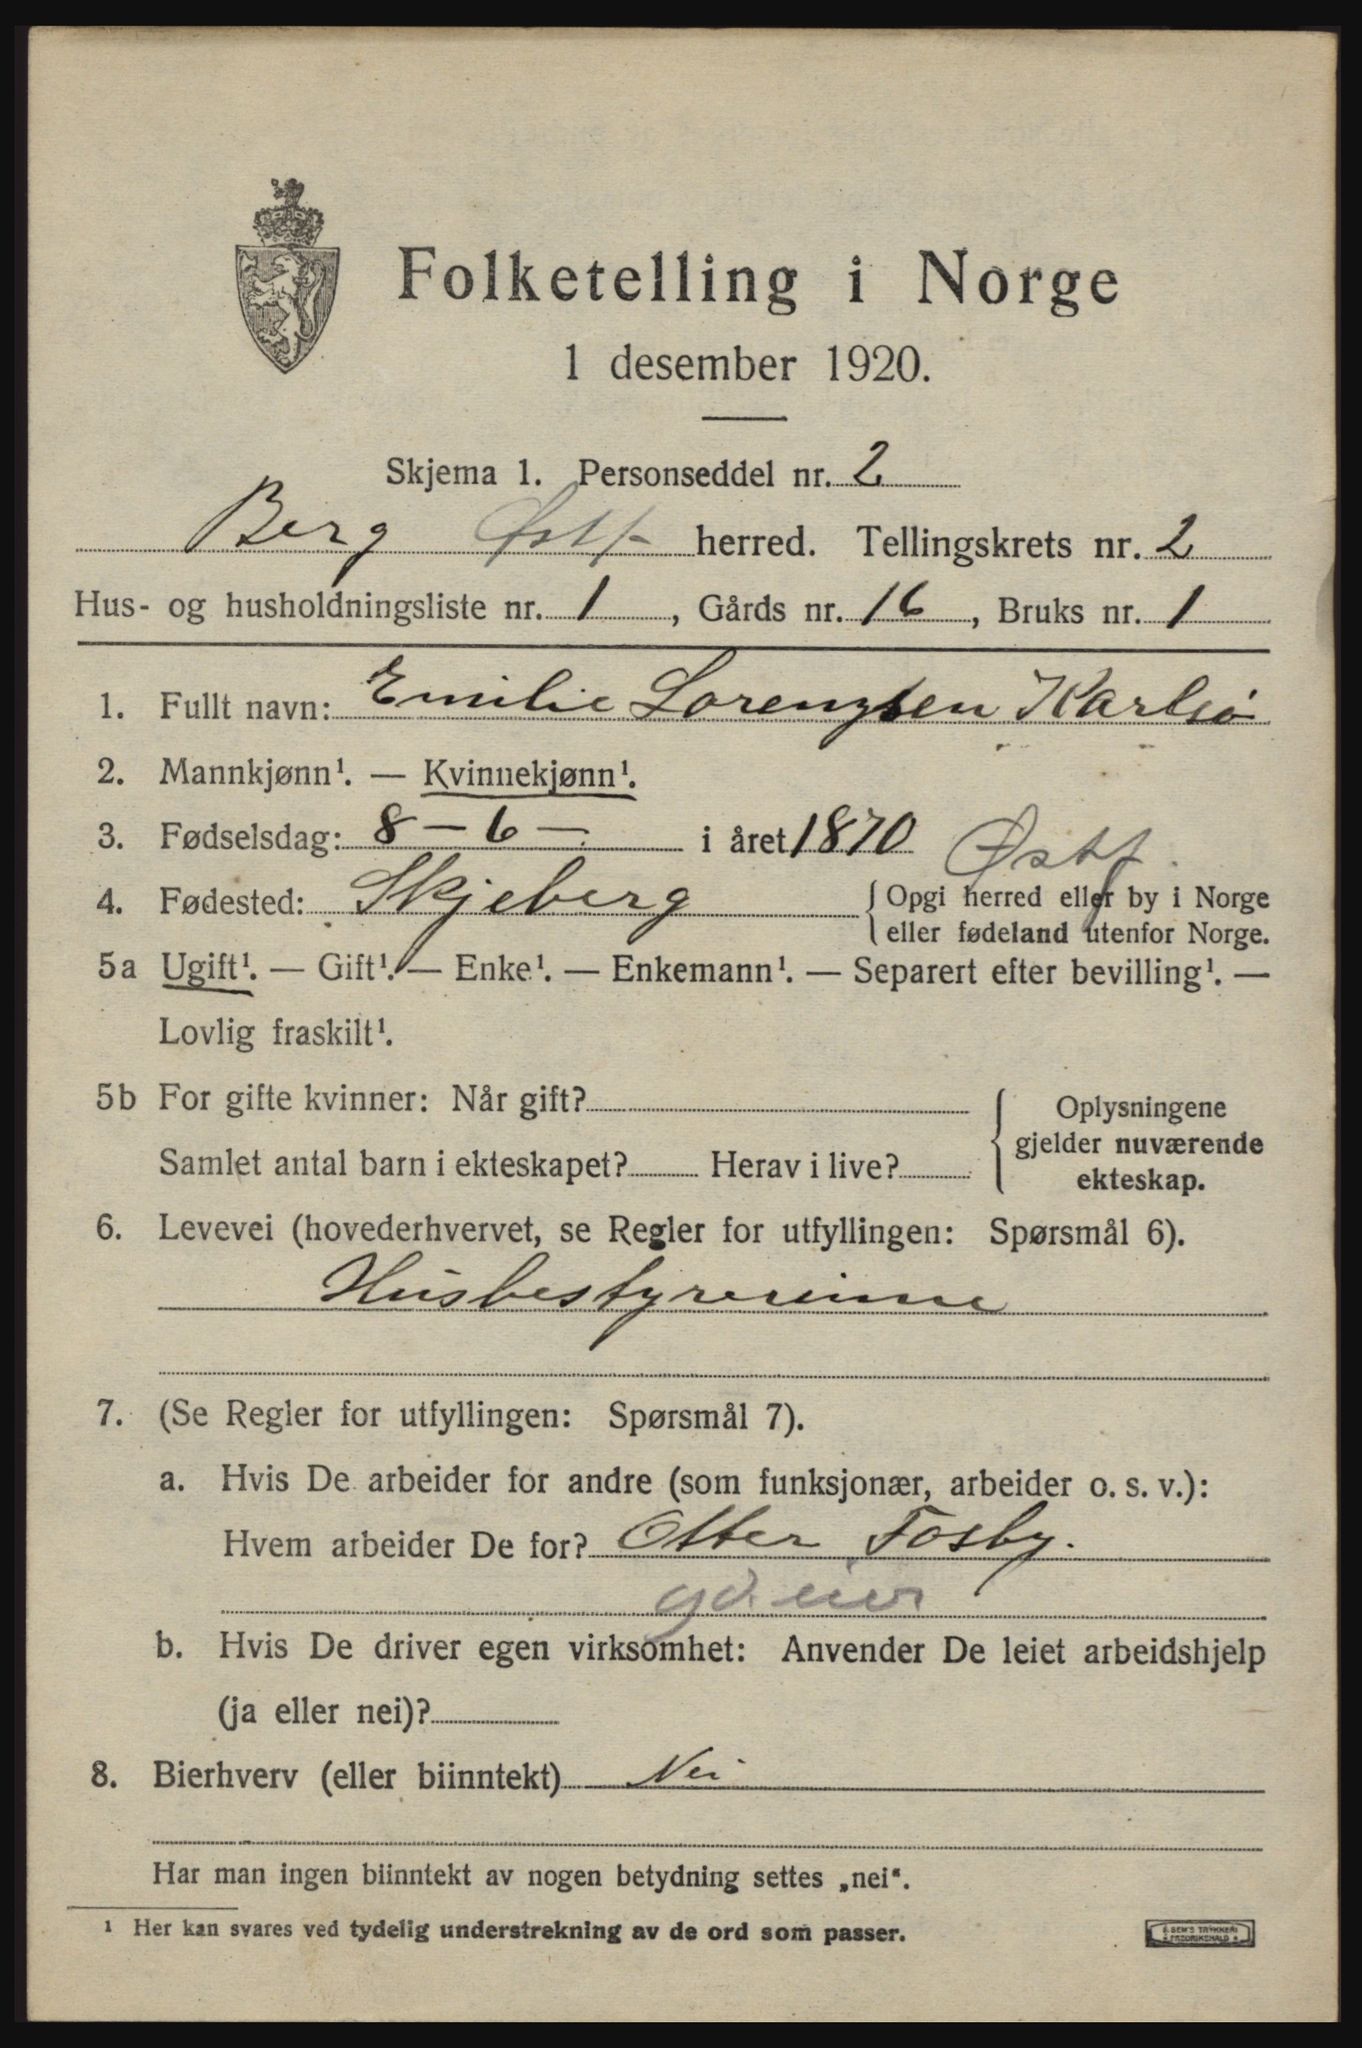 Folketelling i Norge
1 desember 1920.
Skjema 1. Personseddel nr. 2
Berg Østf herred. Tellingskrets nr. 2
Hus- og husholdningsliste nr. 1, Gårds nr. 16, Bruks nr. 1
1. Fullt navn: Emilie Lorenzsen Karlsø
2. Mannkjønn¹. — Kvinnekjønn¹.
3. Fødselsdag: 8 - 6 - i året 1870
Østf.
4. Fødested: Skjeberg { Opgi herred eller by i Norge
eller fødeland utenfor Norge.
5a Ugift¹. — Gift¹. — Enke¹. — Enkemann¹. — Separert efter bevilling¹. —
Lovlig fraskilt¹.
5b For gifte kvinner: Når gift?
Samlet antal barn i ekteskapet? Herav i live?
{ Oplysningene
gjelder nuværende
ekteskap.
6. Levevei (hovederhvervet, se Regler for utfyllingen: Spørsmål 6).
Husbestyrerinne
7. (Se Regler for utfyllingen: Spørsmål 7).
a. Hvis De arbeider for andre (som funksjonær, arbeider o. s. v.):
Hvem arbeider De for? Otter Fosby.
gd.eier
b. Hvis De driver egen virksomhet: Anvender De leiet arbeidshjelp
(ja eller nei)?
8. Bierhverv (eller biinntekt) Nei
Har man ingen biinntekt av nogen betydning settes „nei“.
¹ Her kan svares ved tydelig understrekning av de ord som passer.
E. SEM'S TRYKKERI
FREDRIKSHALD